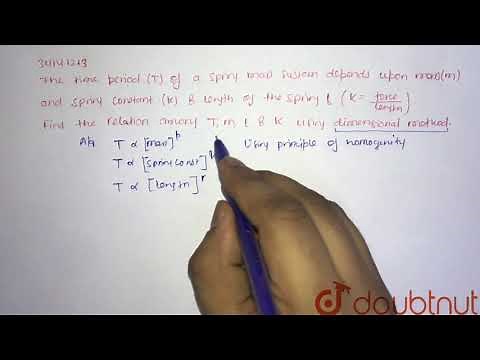 The time period (T) of a spring mass system depends upon mass(m)
and spring constant (K) & length of the spring l (K = force/length)
Find the relation among T, m l & K using dimensional method.
T ∝ [mass]^p Using principle of homoginity
T ∝ [spring const]^q
T ∝ [length]^r
doubtnut